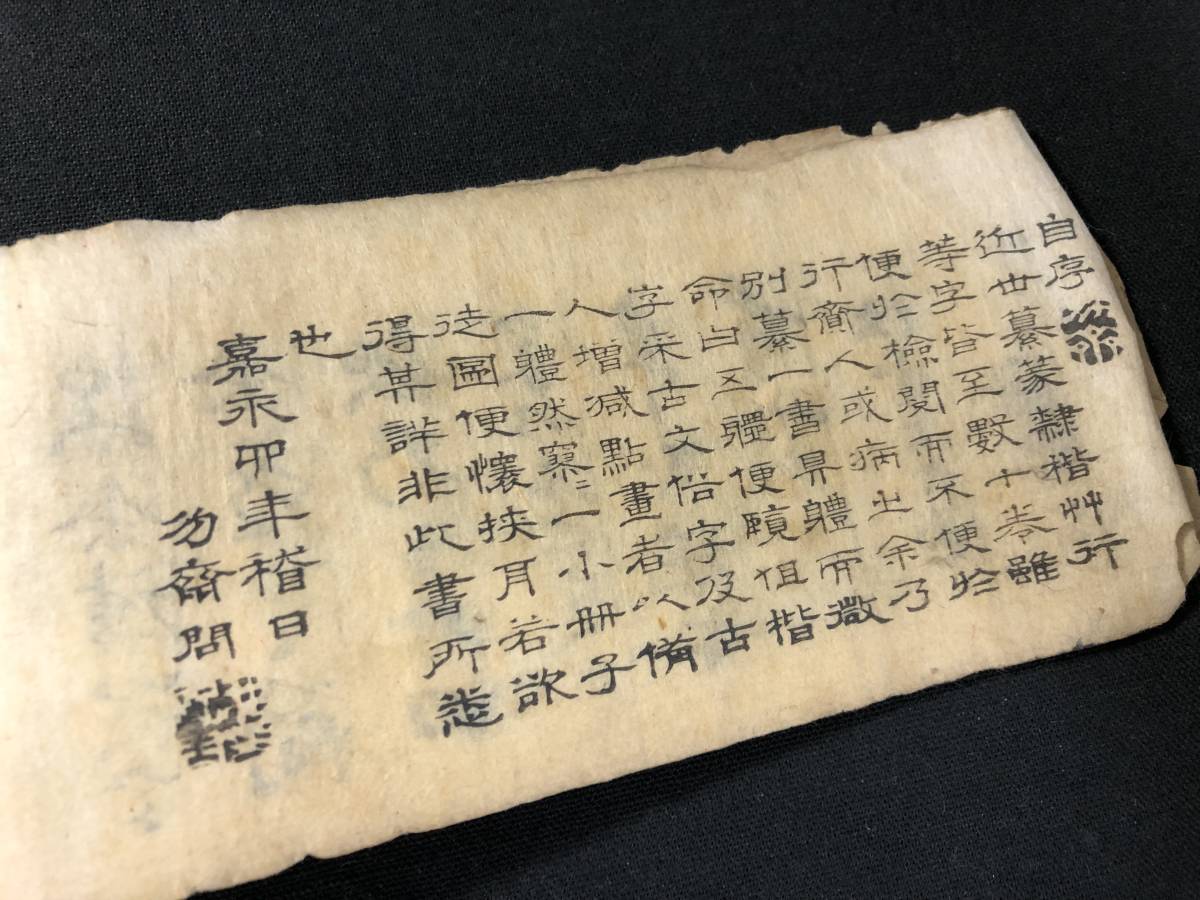 自序
近世纂篆隸楷艸行
等字皆至數十卷雖
便於檢閱而不便於
行齎人或病之余乃
別纂一書具體而微
命曰五體便但楷
字采古文俗字及古
人增減點畫者以備
一體然寥〻一小冊子
徒圖便懷挾耳若欲
得其詳非此書所悉
也
嘉永卯年稽日
勿齋問